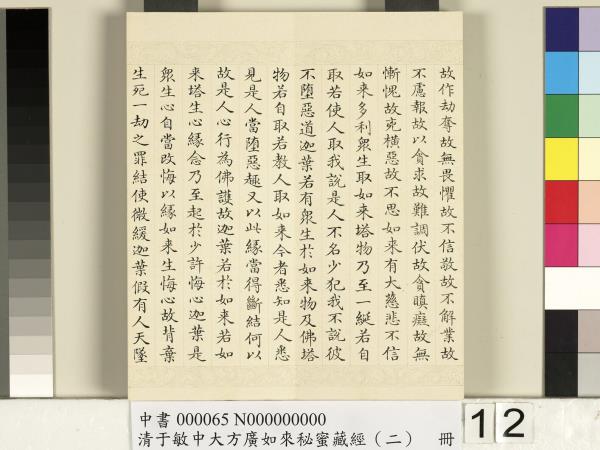 故作劫奪故無畏懼故不信敬故不解業故
不慮報故以貪求故難調伏故貪瞋癡故無
慚愧故兇橫惡故不思如來有大慈悲不信
如來多利眾生取如來塔物乃至一綖若自
取若使人取我說是人不名少犯我不說彼
不墮惡道迦葉若有眾生於如來物及佛塔
物若自取若教人取如來今者悉知是人悉
見是人當墮惡趣又以此緣當得斷結何以
故是人心行為佛護故迦葉若於如來若如
來塔生心緣念乃至起於少許悔心迦葉是
眾生心自當改悔以緣如來生悔心故背棄
生死一劫之罪結使微緩迦葉假有人天墜
中書 000065 N000000000
清于敏中大方廣如來秘蜜藏經（二） 冊
12